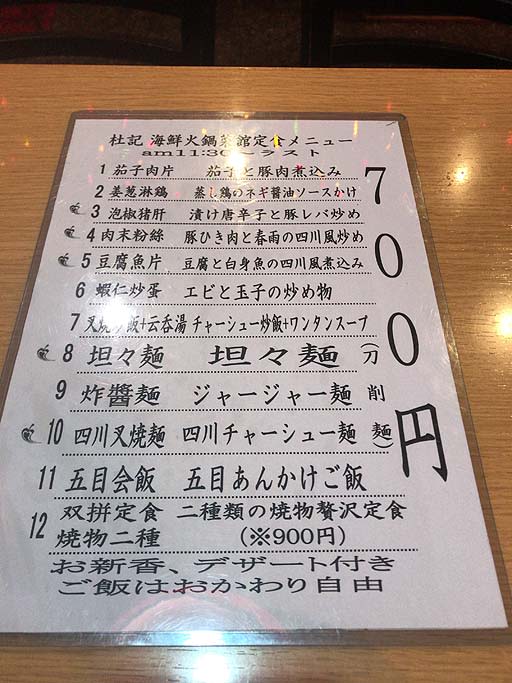 杜記 海鮮火鍋菜館定食メニュー
am11:30~ラスト
1 茄子肉片 茄子と豚肉煮込み
2 姜葱淋鶏 蒸し鶏のネギ醤油ソースかけ
3 泡椒猪肝 漬け唐辛子と豚レバ炒め
4 肉末粉絲 豚ひき肉と春雨の四川風炒め
5 豆腐魚片 豆腐と白身魚の四川風煮込み
6 蝦仁炒蛋 エビと玉子の炒め物
7 叉焼炒飯+云呑湯 チャーシュー炒飯+ワンタンスープ
8 坦々麺 坦々麺
9 炸醬麺 ジャージャー麺
10 四川叉焼麺 四川チャーシュー麺
(刀削麺)
11 五目会飯 五目あんかけご飯
700円
12 双拼定食 二種類の焼物贅沢定食
焼物二種 (※900円)
お新香、デザート付き
ご飯はおかわり自由